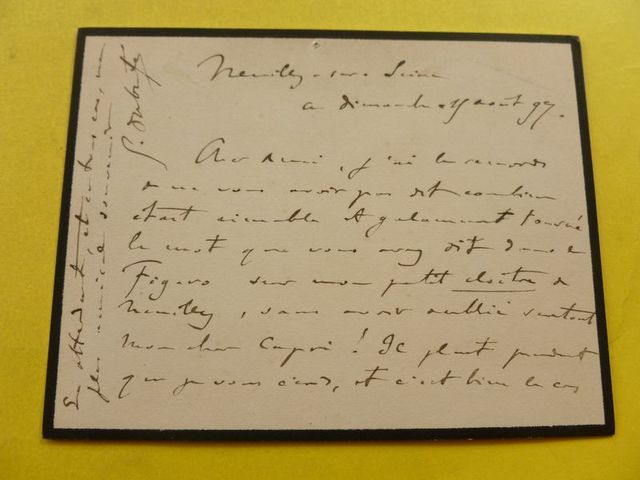 Neuilly-sur-Seine
ce dimanche 15 août 97.
Cher ami, j'ai le remords
de ne vous avoir pas dit combien
était aimable & galamment tourné
le mot que vous avez dit dans le
Figaro sur mon petit cloître de
Neuilly, sans avoir oublié surtout
mon cher Capri ! Il pleut pendant
que je vous écris, et c'est bien le cas
En attendant, et en tous cas, un
plus amical souvenir
G. Dubufe